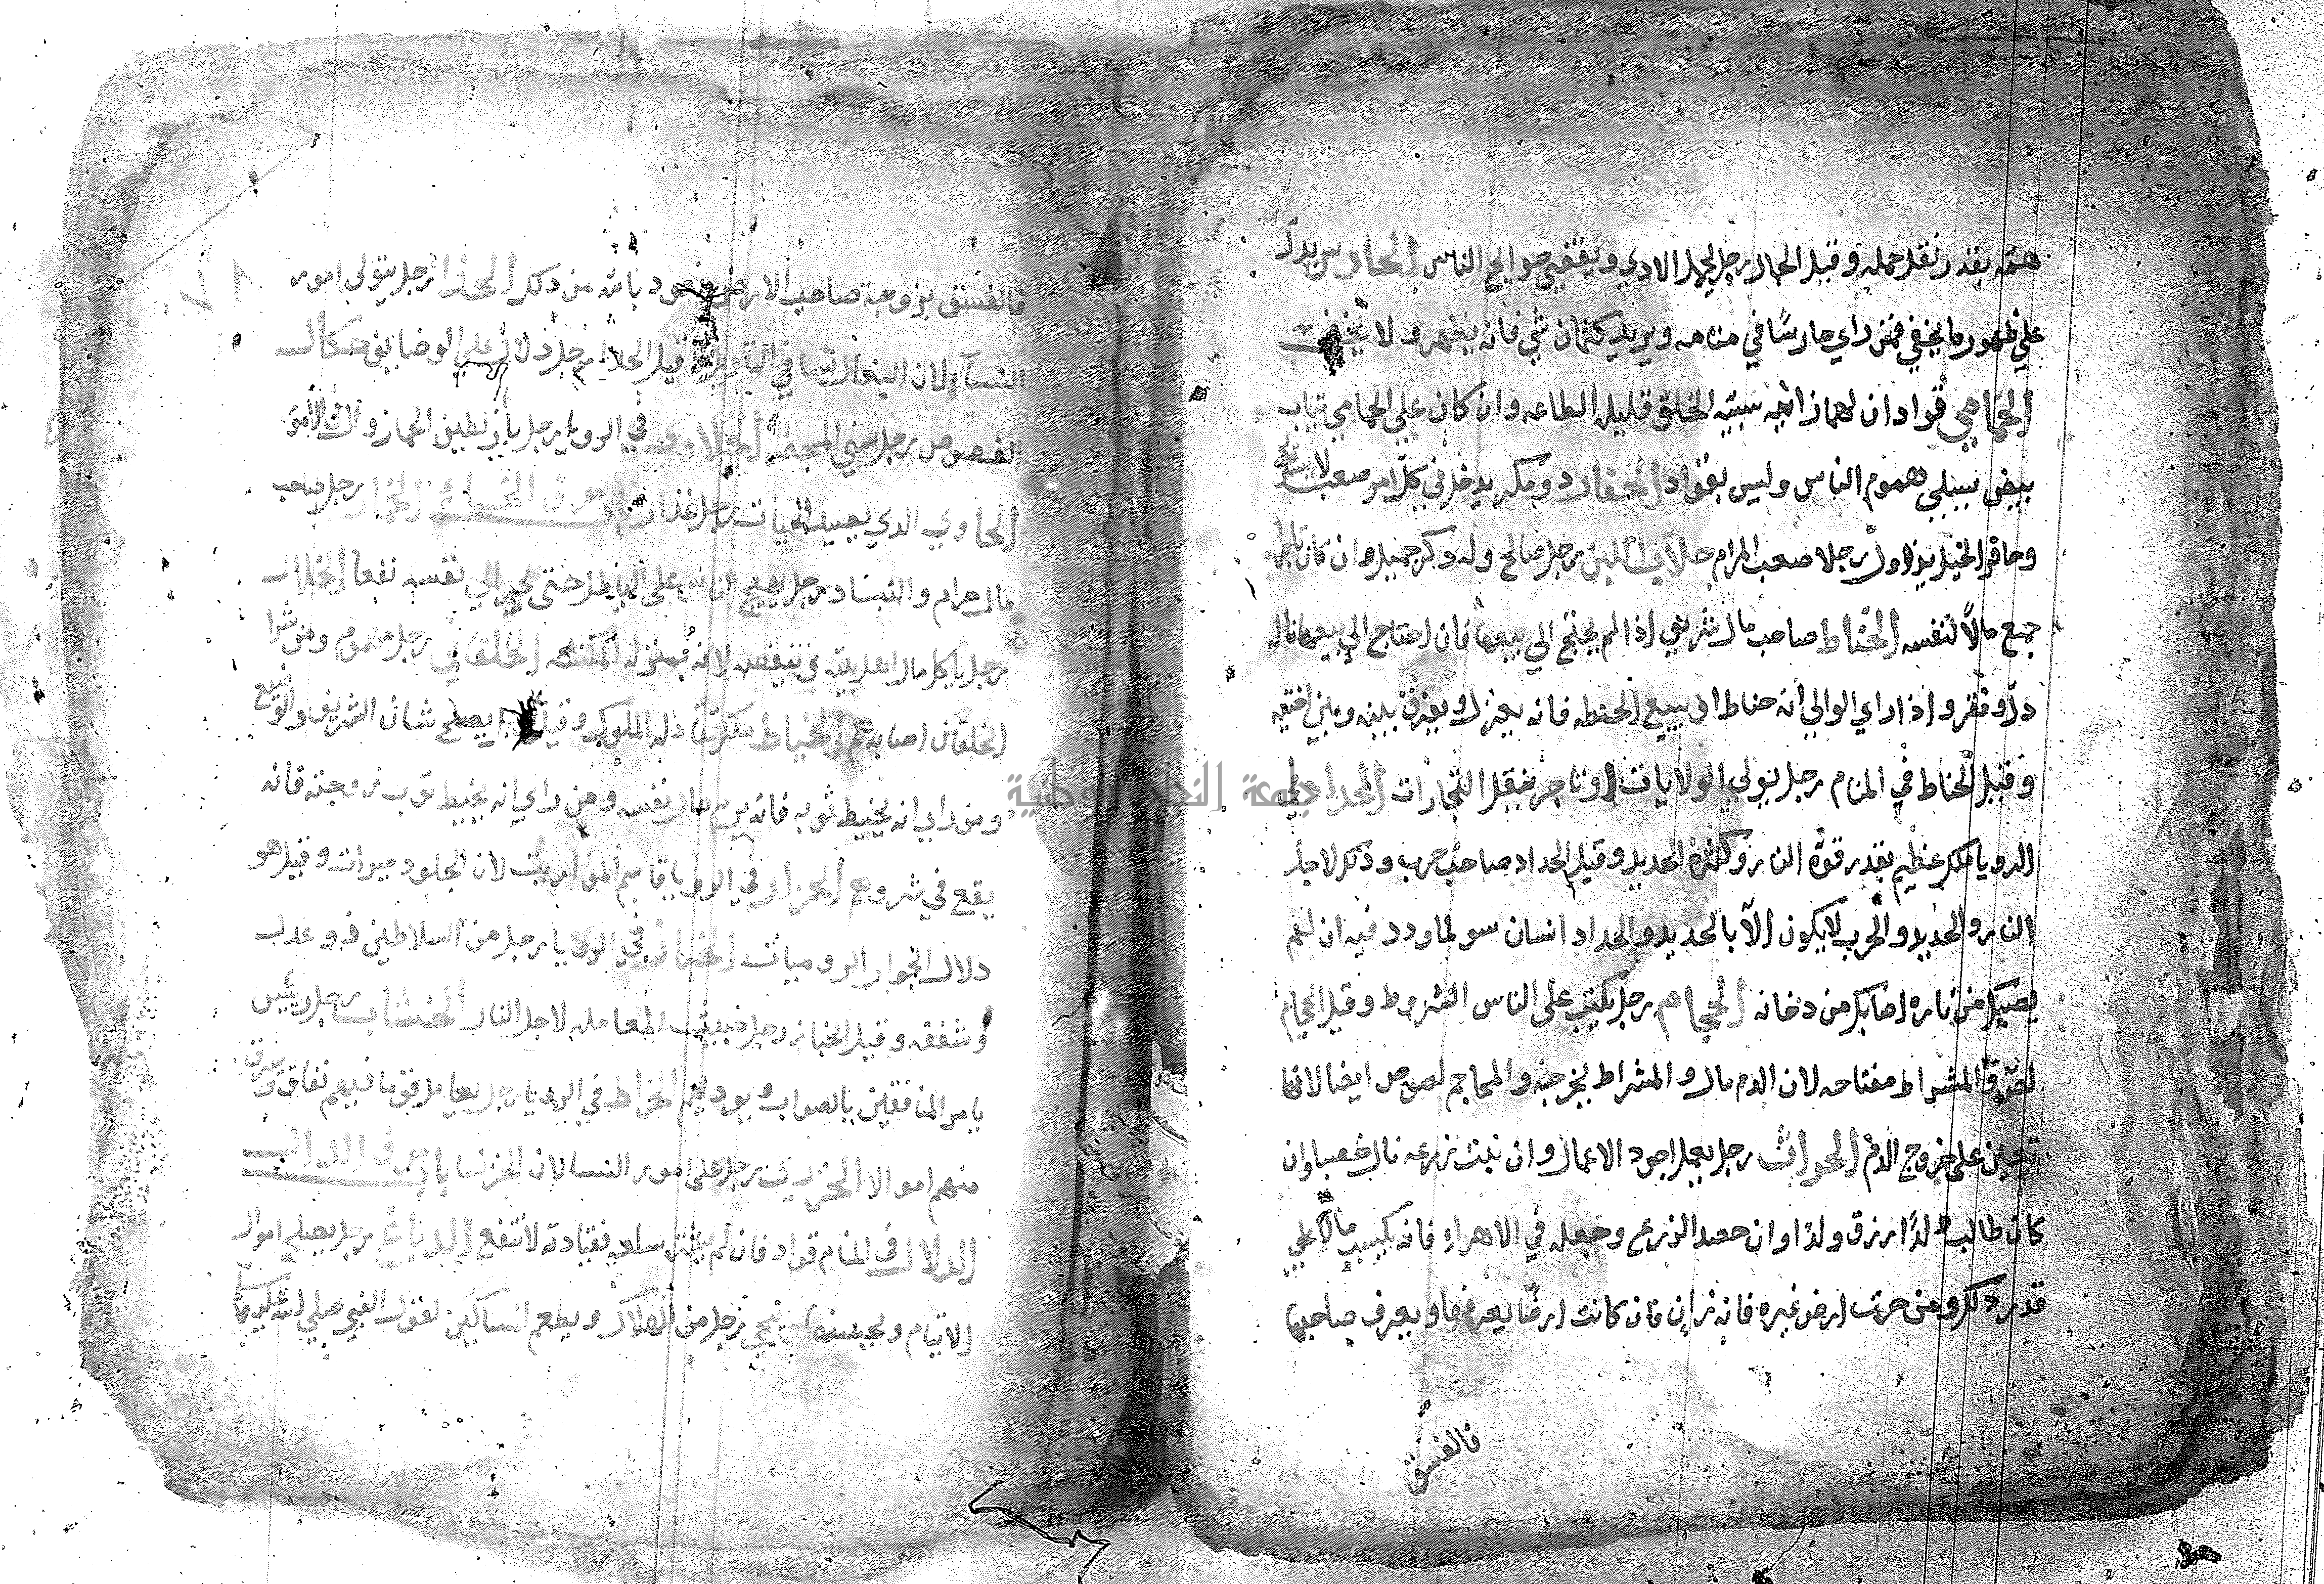 همه بقدر ثقل حمله وقيل الحمال رجل يحمل الاذي ويقضي حوايج الناس الحارس يدل
علي ظهور ما يخفي فمن راي حارسًا في منامه ويريد كتمان شي فانه يظهر ولا يخفي
الحمامي قواد ان لهما زانيه سيئه الخلق قليله الطاعه وان كان علي الحمامي ثياب
بيض يبلي هموم الناس وليس بقواد الحفار ذو مكر يدخل في كل امر صعب لا
وحافر الخيل يزاول رجلا صعب المرام حلاب اللبن رجل صالح وله ذكر جميل وان كان
جمع مالًا لنفسه الحناط صاحب مال شريف اذا لم يحتج الي بيعها فان احتاج الي بيعها ناله
ذل وفقر واذا راي الوالي انه حناط اي يبيع الحنطه فانه يعزل ويفرق بينه وبين
وقيل الحناط في المنام رجل يولي الولايات او تاجر ينقل التجارات الحداد في
الرويا ملك عظيم بقدر قوة النار وكثرة الحديد وقيل الحداد صاحب حرب وذلك لاجل
النار والحديد والحرب لا يكون الا بالحديد والحداد انسان سو لما ورد فيه ان لم
يصيبك من ناره اصابك من دخانه الحجام رجل يكتب علي الناس الشروط وقيل الحجام
لص المشراط مفتاحه لان الدم مال والمشراط يخرجه والمحاجم لصوص ايضا لانها
تعين علي خروج الدم الحراث رجل يعمل اجود الاعمال وان نبت زرعه نال خصبا وان
كان طالب ولدًا رزق ولدا وان حصد الزرع وجعله في الاهراء فانه يكسب مالا علي
قدر ذلك ومن حرث ارض غيره فانه زان فان كانت ارضًا يعرفها ويعرف صاحبها
فالفسق
فالفسق بزوجة صاحب الارض نعود بالله من ذلك الحذا رجل يتولي امور
النسآء لان النعال نسا في التاويل وقيل الحذا رجل دلال علي الوصايف حكاك
الفصوص رجل سيئ الحلاوي في الرويا رجل بار لطيف
الحاوي الذي يصيد الحيات رجل حرف الخاء الخمار رجل صاحب
مال حرام والنباد رجل يهيج الناس علي الباطل حتي يجر الي نفسه نفعا الخلال
رجل ياكل مال اهل بيته لانه بمنزله المكنسه الخلقاني رجل مهموم ومن شرا
الخلقان اصابه هم الخياط الملوك وقيل يصلح شان الشريف
ومن راي انه يخيط ثوبه فانه نفسه ومن راي انه يخيط ثوب زوجته فانه
يقع في شر وهم الخراز في الرويا قاسم المواريث لان الجلود ميراث وقيل هو
دلال الجوار الروميات الخباز في الرويا رجل من السلاطين ذو عدل
وشفقه وقيل الخباز رجل خبيث المعامله لاجل النار الخشاب رجل رئيس
يامر المنافقين بالصواب ويودبهم الخراط في الرويا رجل يعامل قوما فيهم نفاق
منهم اموالا الخزري رجل علي امور النسا لان الخز نسا باب حرف الدال
الدلال في المنام قواد فان لم سلعه فقيادته لا تنفع الدباغ رجل يصلح اموال
الايتام رجل من الهلاك ويطعم المساكين لقول النبي صلي الله عليه